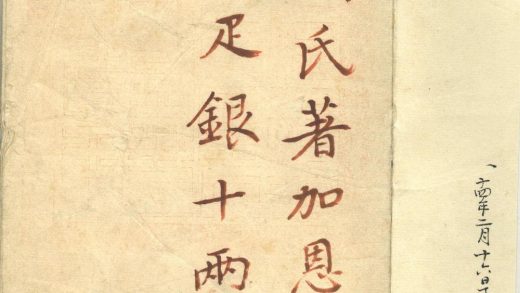 十四年二月十六日
氏著加恩
疋銀十兩